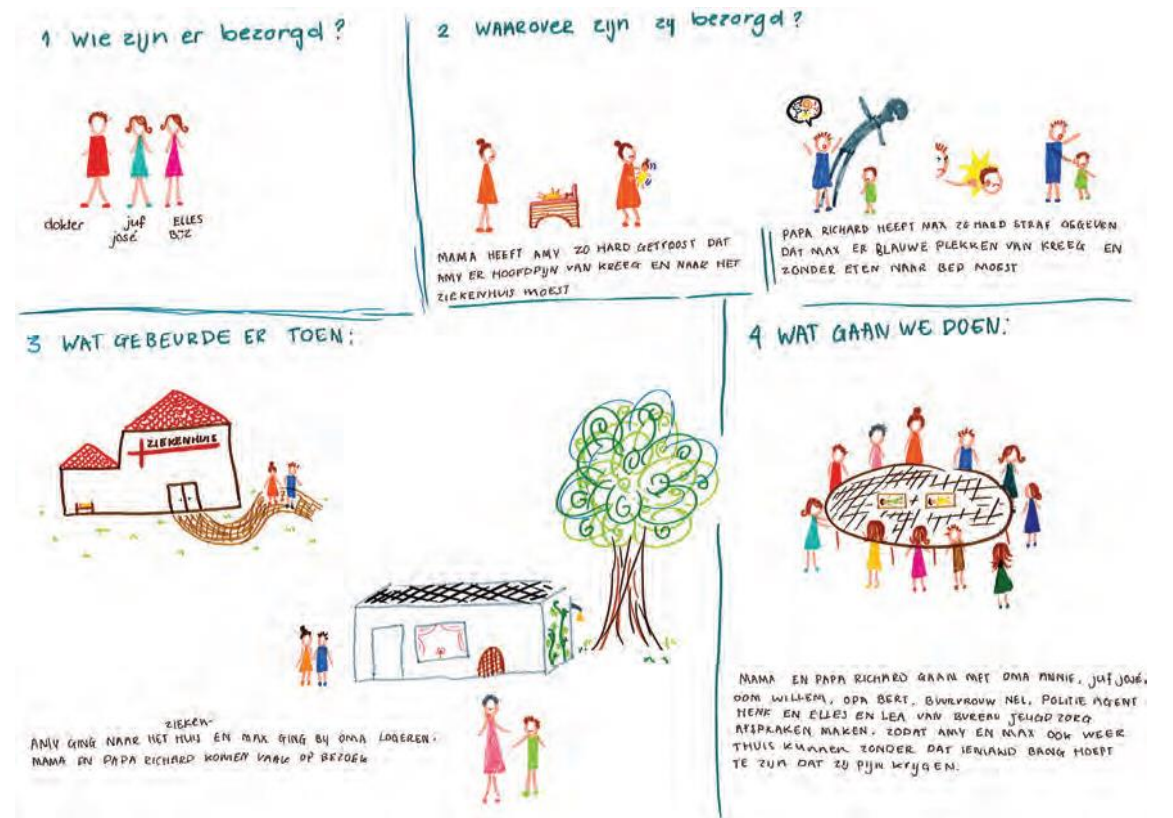 1 Wie zijn er bezorgd?
dokter
juf
josé
ELLES
BJZ
2 WAAROVER zijn zij bezorgd?
MAMA HEEFT AMY ZO HARD GETROOST DAT
AMY ER HOOFDPIJN VAN KREEG EN NAAR HET
ZIEKENHUIS MOEST
PAPA RICHARD HEEFT MAX ZO HARD STRAF GEGEVEN
DAT MAX ER BLAUWE PLEKKEN VAN KREEG EN
ZONDER ETEN NAAR BED MOEST
3 WAT GEBEURDE ER TOEN:
ZIEKENHUIS
ZIEKEN-
AMY GING NAAR HET HUIS EN MAX GING BIJ OMA LOGEREN.
MAMA EN PAPA RICHARD KOMEN VAAK OP BEZOEK
4 WAT GAAN WE DOEN:
MAMA EN PAPA RICHARD GAAN MET OMA ANNIE, juf josé,
OOM WILLEM, OPA BERT, BUURVROUW NEL, POLITIE AGENT
HENK EN ELLES EN LEA VAN BUREAU JEUGDZORG
AFSPRAKEN MAKEN, ZODAT AMY EN MAX OOK WEER
THUIS KUNNEN ZONDER DAT IEMAND BANG HOEFT
TE ZIJN DAT ZIJ PIJN KRIJGEN.